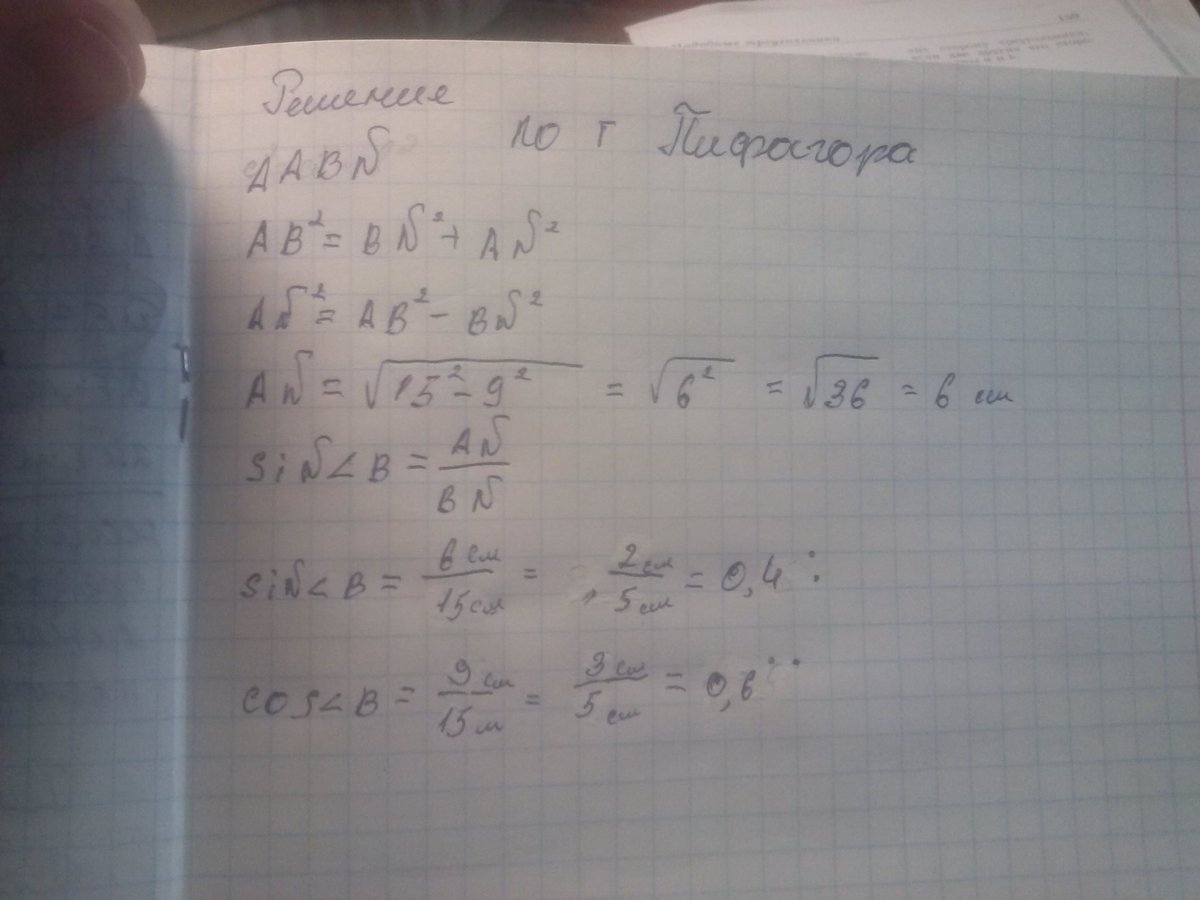 Решение
по т Пифагора
ΔABN
AB² = BN² + AN²
AN² = AB² - BN²
AN = √15² - 9² = √6² = √36 = 6 см
sin∠B = AN/BN
sin∠B = 6 см/15 см = 2 см/5 см = 0,4
cos∠B = 9 см/15 м = 3 см/5 см = 0,6
159